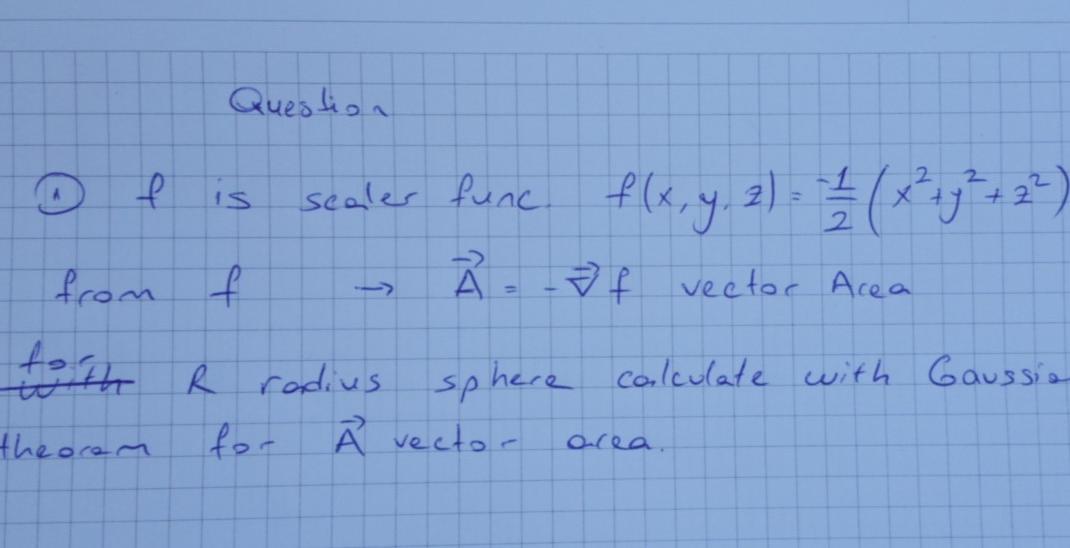 Question
① f is scaler func. f(x, y, z) = -1/2 (x²+y²+z²)
from f → A⃗ = -∇⃗f vector Area
for with R radius sphere calculate with Gaussia
theoram for A⃗ vector area.